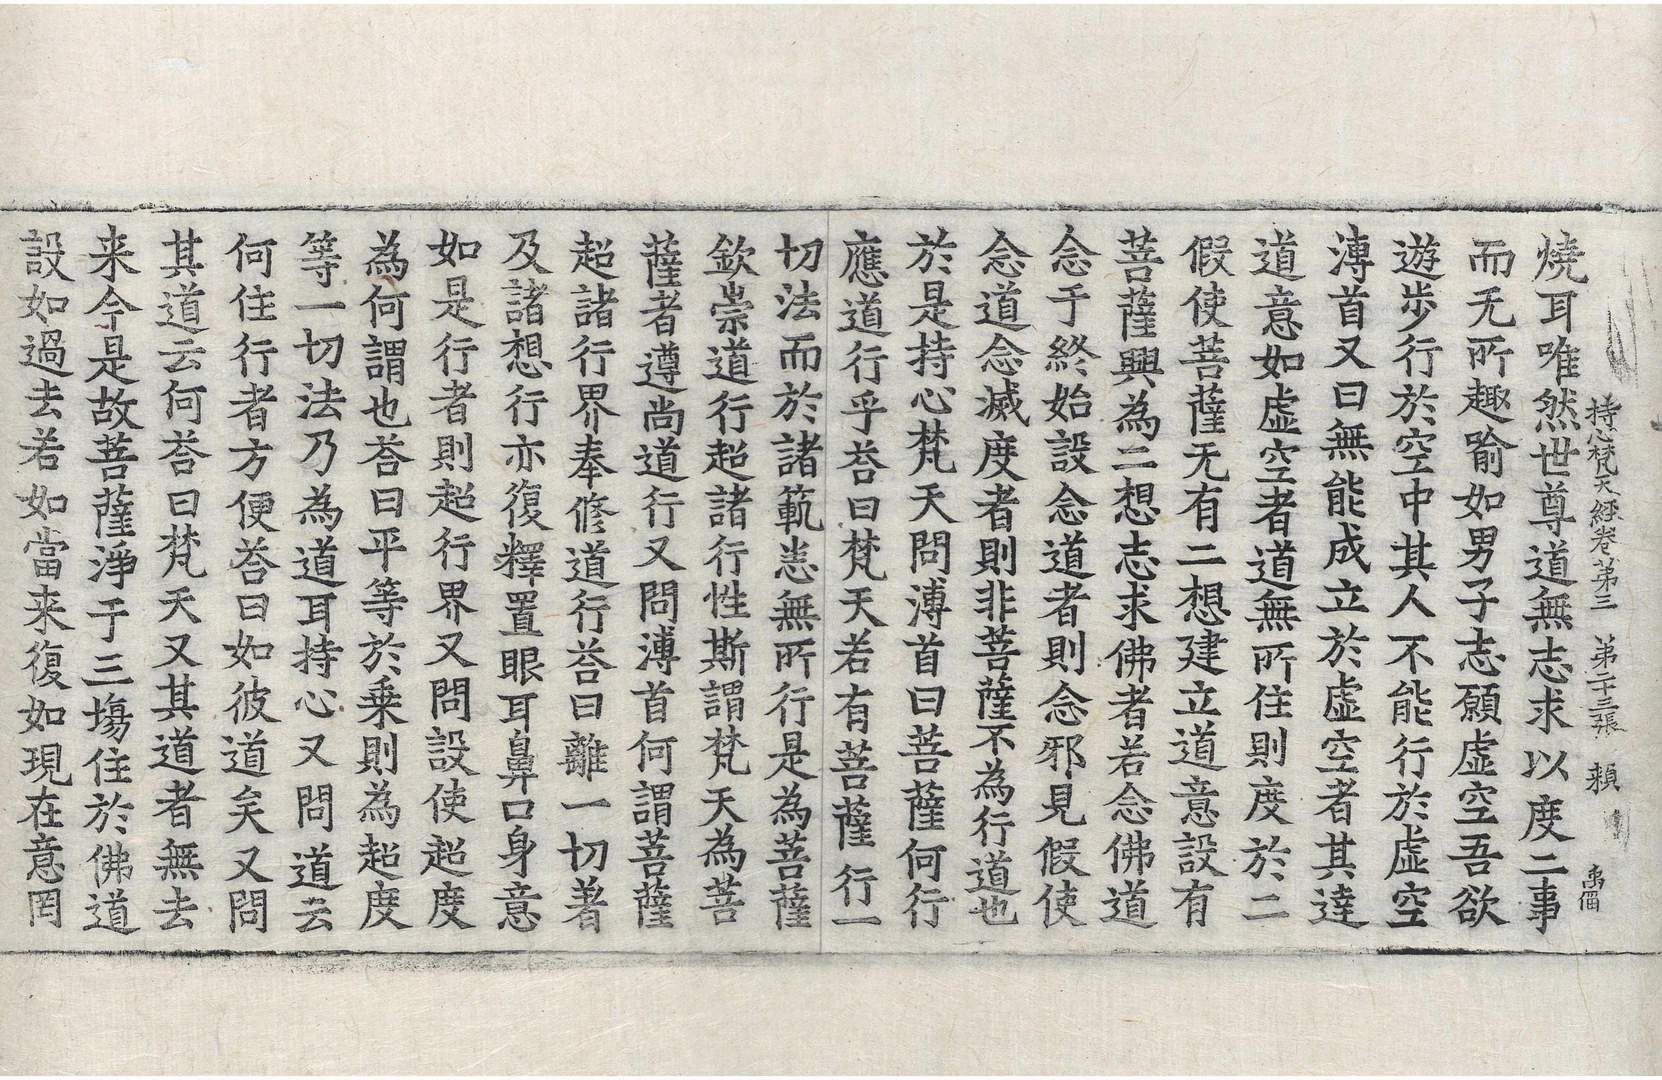 持心梵天經卷第三　第二十三張　賴
燒耳唯然世尊道無志求以度二事
而无所趣喻如男子志願虛空吾欲
遊步行於空中其人不能行於虛空
溥首又曰無能成立於虛空者其達
道意如虛空者道無所住則度於二
假使菩薩无有二想建立道意設有
菩薩興為二想志求佛者若念佛道
念于終始設念道者則念邪見假使
念道念滅度者則非菩薩不為行道也
於是持心梵天問溥首曰菩薩何行
應道行乎荅曰梵天若有菩薩行一
切法而於諸範恙無所行是為菩薩
欽崇道行超諸行性斯謂梵天為菩
薩者遵尚道行又問溥首何謂菩薩
超諸行界奉修道行荅曰離一切著
及諸想行亦復釋置眼耳鼻口身意
如是行者則超行界又問設使超度
為何謂也荅曰平等於乗則為超度
等一切法乃為道耳持心又問道云
何住行者方便荅曰如彼道矣又問
其道云何荅曰梵天又其道者無去
来今是故菩薩淨于三場住於佛道
設如過去若如當来復如現在意罔